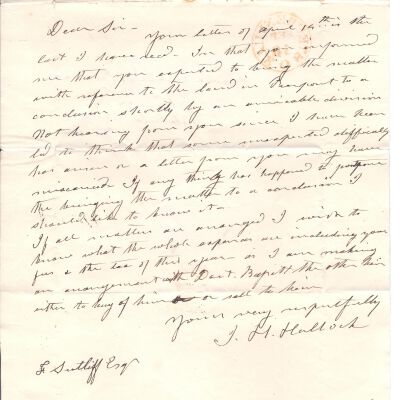 Dear Sir - Your letter of April 14th is the
last I have recd. In that you informed
me that you expected to bring the matter
with reference to the land in Freeport to a
conclusion shortly by an amicable division
Not hearing from you since I have been
led to think that some unexpected difficulty
has arisen or a letter from you may have
miscarried If any thing has happened to postpone
the bringing the matter to a conclusion I
should like to know it -
If all matters are arranged I wish to
know what the whole expenses are including your
fees & the tax of this year as I am making
an arrangement with Doct. the other heir
either to buy of him or sell to him
Yours very respectfully
J. H. Hallock
F. Sutliff Esqr